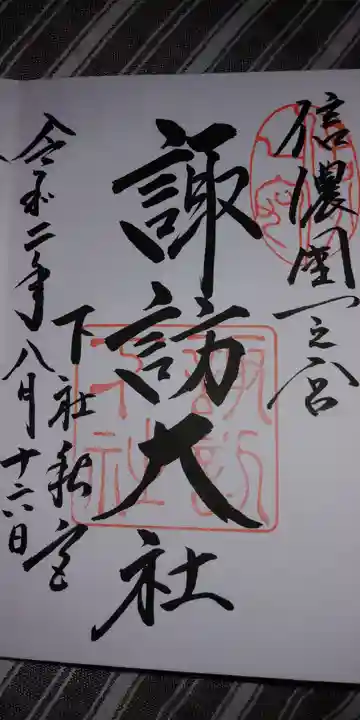 信濃國一之宮
諏訪大社
下社秋宮
令和二年八月十六日
諏訪
下社